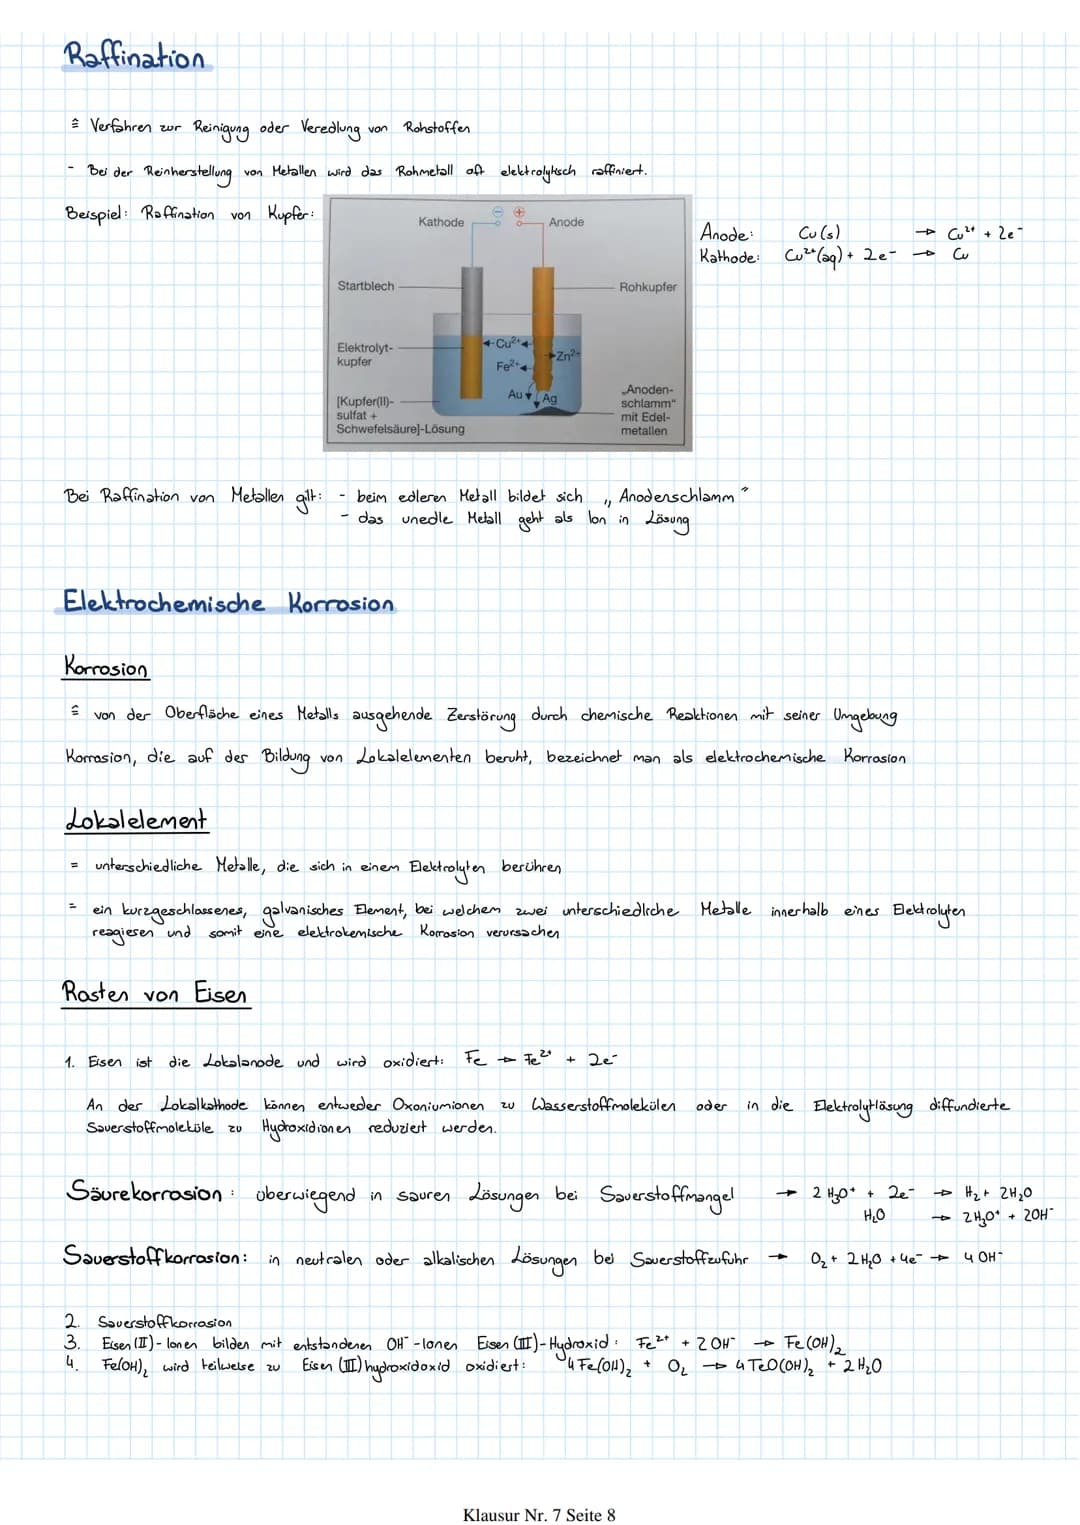 Raffination
≙ Verfahren zur Reinigung oder Veredlung von Rohstoffen
- Bei der Reinherstellung von Metallen wird das Rohmetall oft elektrolytisch raffiniert.
Beispiel: Raffination von Kupfer:
Kathode ⊖ ⊕ Anode
Startblech
Rohkupfer
Elektrolyt-
kupfer
Cu²⁺
Zn²⁺
Fe²⁺
Au Ag
[Kupfer(II)-
sulfat +
Schwefelsäure]-Lösung
„Anoden-
schlamm"
mit Edel-
metallen
Anode: Cu(s) → Cu²⁺ + 2e⁻
Kathode: Cu²⁺(aq) + 2e⁻ → Cu
Bei Raffination von Metallen gilt: - beim edleren Metall bildet sich „Anodenschlamm"
- das unedle Metall geht als Ion in Lösung
Elektrochemische Korrosion
Korrosion
≙ von der Oberfläche eines Metalls ausgehende Zerstörung durch chemische Reaktionen mit seiner Umgebung
Korrosion, die auf der Bildung von Lokalelementen beruht, bezeichnet man als elektrochemische Korrosion
Lokalelement
= unterschiedliche Metalle, die sich in einem Elektrolyten berühren
= ein kurzgeschlossenes, galvanisches Element, bei welchem zwei unterschiedliche Metalle innerhalb eines Elektrolyten
reagieren und somit eine elektrokemische Korrosion verursachen
Rosten von Eisen
1. Eisen ist die Lokalanode und wird oxidiert: Fe → Fe²⁺ + 2e⁻
An der Lokalkathode können entweder Oxoniumionen zu Wasserstoffmolekülen oder in die Elektrolytlösung diffundierte
Sauerstoffmoleküle zu Hydroxidionen reduziert werden.
Säurekorrosion: überwiegend in sauren Lösungen bei Sauerstoffmangel → 2 H₃O⁺ + 2e⁻ → H₂ + 2H₂O
H₂O → 2H₃O⁺ + 2OH⁻
Sauerstoffkorrosion: in neutralen oder alkalischen Lösungen bei Sauerstoffzufuhr → O₂ + 2H₂O + 4e⁻ → 4 OH⁻
2. Sauerstoffkorrosion
3. Eisen(II)-Ionen bilden mit entstandenen OH⁻-Ionen Eisen(III)-Hydroxid: Fe²⁺ + 2OH⁻ → Fe(OH)₂
4. Fe(OH)₂ wird teilweise zu Eisen(III)hydroxidoxid oxidiert: 4Fe(OH)₂ + O₂ → 4FeO(OH)₂ + 2H₂O
Klausur Nr. 7 Seite 8